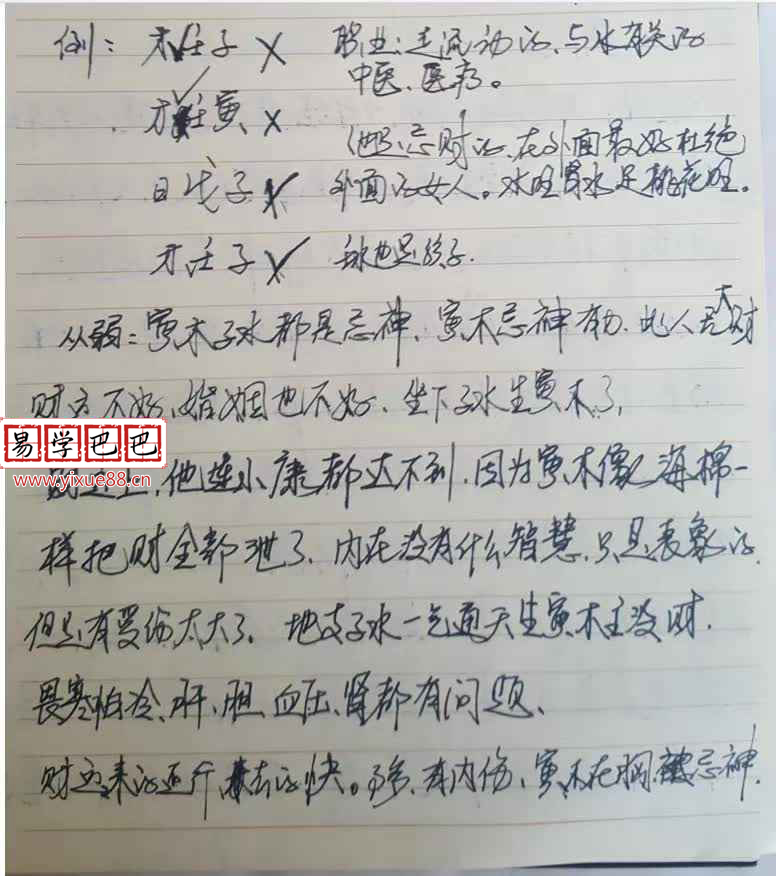 例：才壬子 × 职业：走流动的、与水有关的
中医、医疗。
才壬寅 ×
他忌财的、在外面最好杜绝
日戊子 × 外面的女人。水旺寒水是桃花旺。
才壬子 ✓ 也是孩子.
从弱：寅木子水都是忌神、寅木忌神有力. 此人无大财
财方不好、婚姻也不好. 坐下子水生寅木了,
易学巴巴
www.yixue88.cn
上, 他连小康都达不到. 因为寅木像海棉一
样把财全部泄了、内在没有什么智慧、只是表象的.
但是有受伤太大了、地支子水一气通天生寅木主没财.
畏寒怕冷、肝、胆、血压、肾都有问题、
财方来的还行, 去的快。多、有内伤、寅木在胸 忌神.